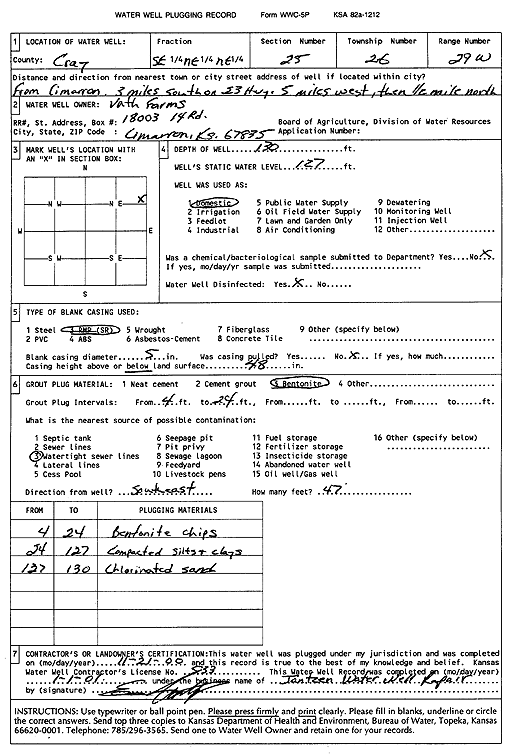 WATER WELL PLUGGING RECORD Form WWC-5P KSA 82a-1212
1 LOCATION OF WATER WELL: Fraction Section Number Township Number Range Number
County: Gray SE 1/4 NE 1/4 NE 1/4 25 26 29 W
Distance and direction from nearest town or city street address of well if located within city?
From Cimarron. 3 miles south on 23 Hwy. 5 miles west, then 1/2 mile north
2 WATER WELL OWNER: Vath Farms
RR#, St. Address, Box #: 18003 19 Rd. Board of Agriculture, Division of Water Resources
City, State, ZIP Code : Cimarron, Ks. 67835 Application Number:
3 MARK WELL'S LOCATION WITH AN "X" IN SECTION BOX:
N
N W N E X
W E
S W S E
S
4 DEPTH OF WELL...130...ft.
WELL'S STATIC WATER LEVEL...127...ft.
WELL WAS USED AS:
1 Domestic 5 Public Water Supply 9 Dewatering
2 Irrigation 6 Oil Field Water Supply 10 Monitoring Well
3 Feedlot 7 Lawn and Garden Only 11 Injection Well
4 Industrial 8 Air Conditioning 12 Other
Was a chemical/bacteriological sample submitted to Department? Yes....No.X..
If yes, mo/day/yr sample was submitted
Water Well Disinfected: Yes.X.. No.....
5 TYPE OF BLANK CASING USED:
1 Steel 3 RMP (SR) 5 Wrought 7 Fiberglass 9 Other (specify below)
2 PVC 4 ABS 6 Asbestos-Cement 8 Concrete Tile
Blank casing diameter...5...in. Was casing pulled? Yes...... No.X... If yes, how much
Casing height above or below land surface...48...in.
6 GROUT PLUG MATERIAL: 1 Neat cement 2 Cement grout 3 Bentonite 4 Other
Grout Plug Intervals: From..4..ft. to..24..ft., From......ft. to ......ft., From......ft. to ......ft.
What is the nearest source of possible contamination:
1 Septic tank 6 Seepage pit 11 Fuel storage 16 Other (specify below)
2 Sewer lines 7 Pit privy 12 Fertilizer storage
3 Watertight sewer lines 8 Sewage lagoon 13 Insecticide storage
4 Lateral lines 9 Feedyard 14 Abandoned water well
5 Cess Pool 10 Livestock pens 15 Oil well/Gas well
Direction from well? ...Southeast... How many feet? .47'
FROM TO PLUGGING MATERIALS
4 24 Bentonite chips
24 127 Compacted silts + clays
127 130 Chlorinated sand
7 CONTRACTOR'S OR LANDOWNER'S CERTIFICATION:This water well was plugged under my jurisdiction and was completed
on (mo/day/year)...11-21-00. and this record is true to the best of my knowledge and belief. Kansas
Water Well Contractor's License No. .533 This Water Well Record was completed on (mo/day/year)
1-1-01. under the business name of Jantzen Water Well Repair
by (signature)
INSTRUCTIONS: Use typewriter or ball point pen. Please press firmly and print clearly. Please fill in blanks, underline or circle
the correct answers. Send top three copies to Kansas Department of Health and Environment, Bureau of Water, Topeka, Kansas
66620-0001. Telephone: 785/296-3565. Send one to Water Well Owner and retain one for your records.